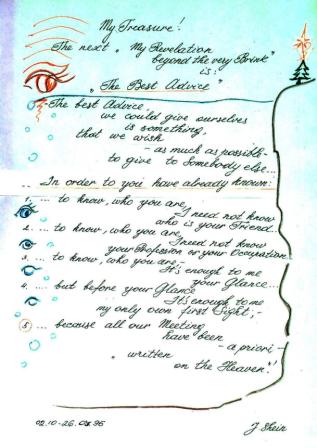 My Treasure!
The next „ My Revelation
beyond the very Brink"
is:
„ The Best Advice "
The best Advice,
we could give ourselves
is something,
that we wish
- as much as possible -
to give to Somebody else...
... In order to you have already known:
1. ... to know, who you are,
I need not know
who is your Friend...
2. ... to know, who you are,
I need not know
your Profession or your Occupation
3. ... to know, who you are -
It's enough to me
your Glance...
4. ... but before your Glance
It's enough to me
my only own first Sight, -
5. ... because all our Meeting
have been
- a priori -
„ written
on the Heaven"!
02.10-26.02.96
J Shein